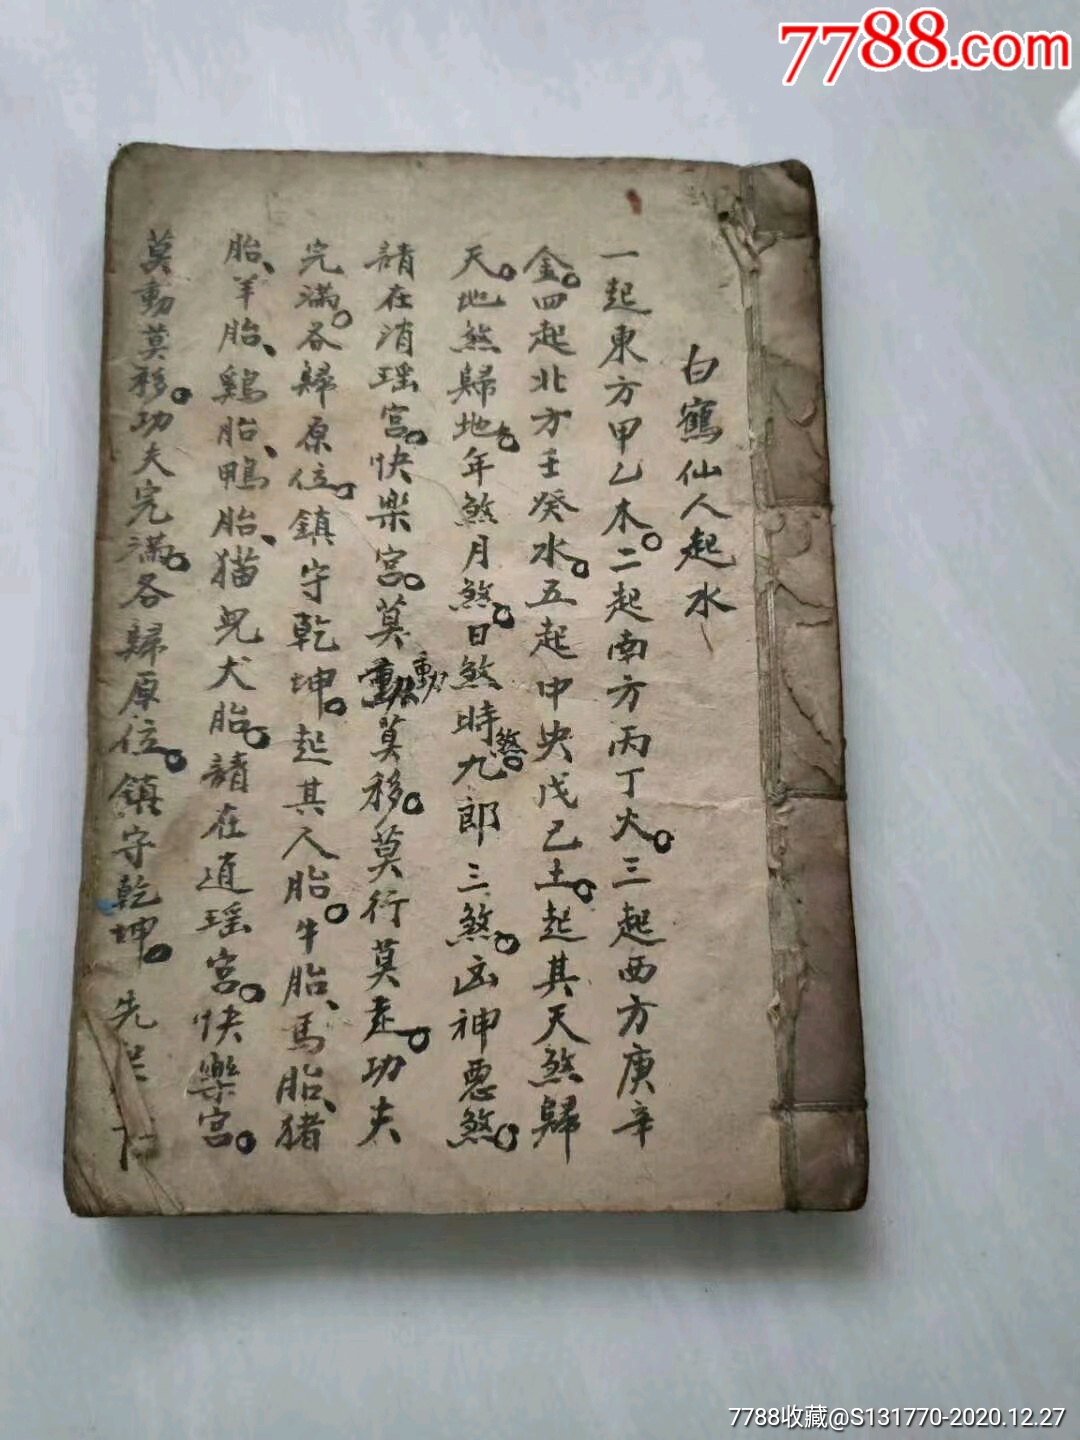 7788.com
白鶴仙人起水
一起東方甲乙木。二起南方丙丁火。三起西方庚辛
金。四起北方壬癸水。五起中央戊己土。起其天煞歸
天。地煞歸地。年煞月煞。日煞時煞。九郎三煞。凶神惡煞。
請在消瑶宮。快樂宮。莫動動莫移。莫行莫走。功夫
完滿。各歸原位。鎮守乾坤。起其人胎。牛胎、馬胎、猪
胎、羊胎、鷄胎、鴨胎、猫児犬胎。請在逍瑶宮。快樂宮。
莫動莫移。功夫完滿。各歸原位。鎮守乾坤。先
7788收藏@S131770-2020.12.27